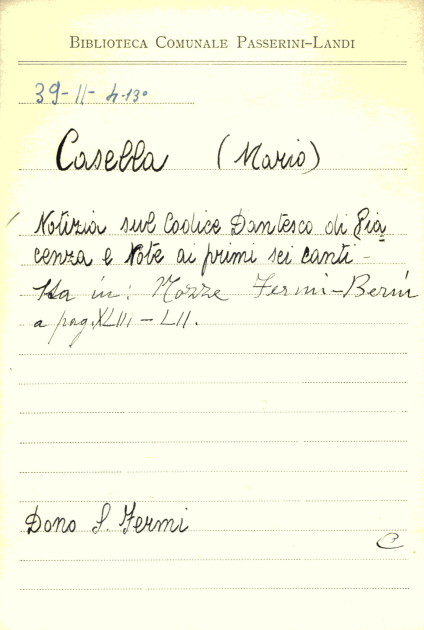 BIBLIOTECA COMUNALE PASSERINI-LANDI
39-II-4-13°
Casella (Mario)
Notizia sul Codice Dantesco di Pia
cenza e Note ai primi sei canti -
Sta in: Nozze Fermi-Berni
a pag. XLIII - LII.
Dono S. Fermi